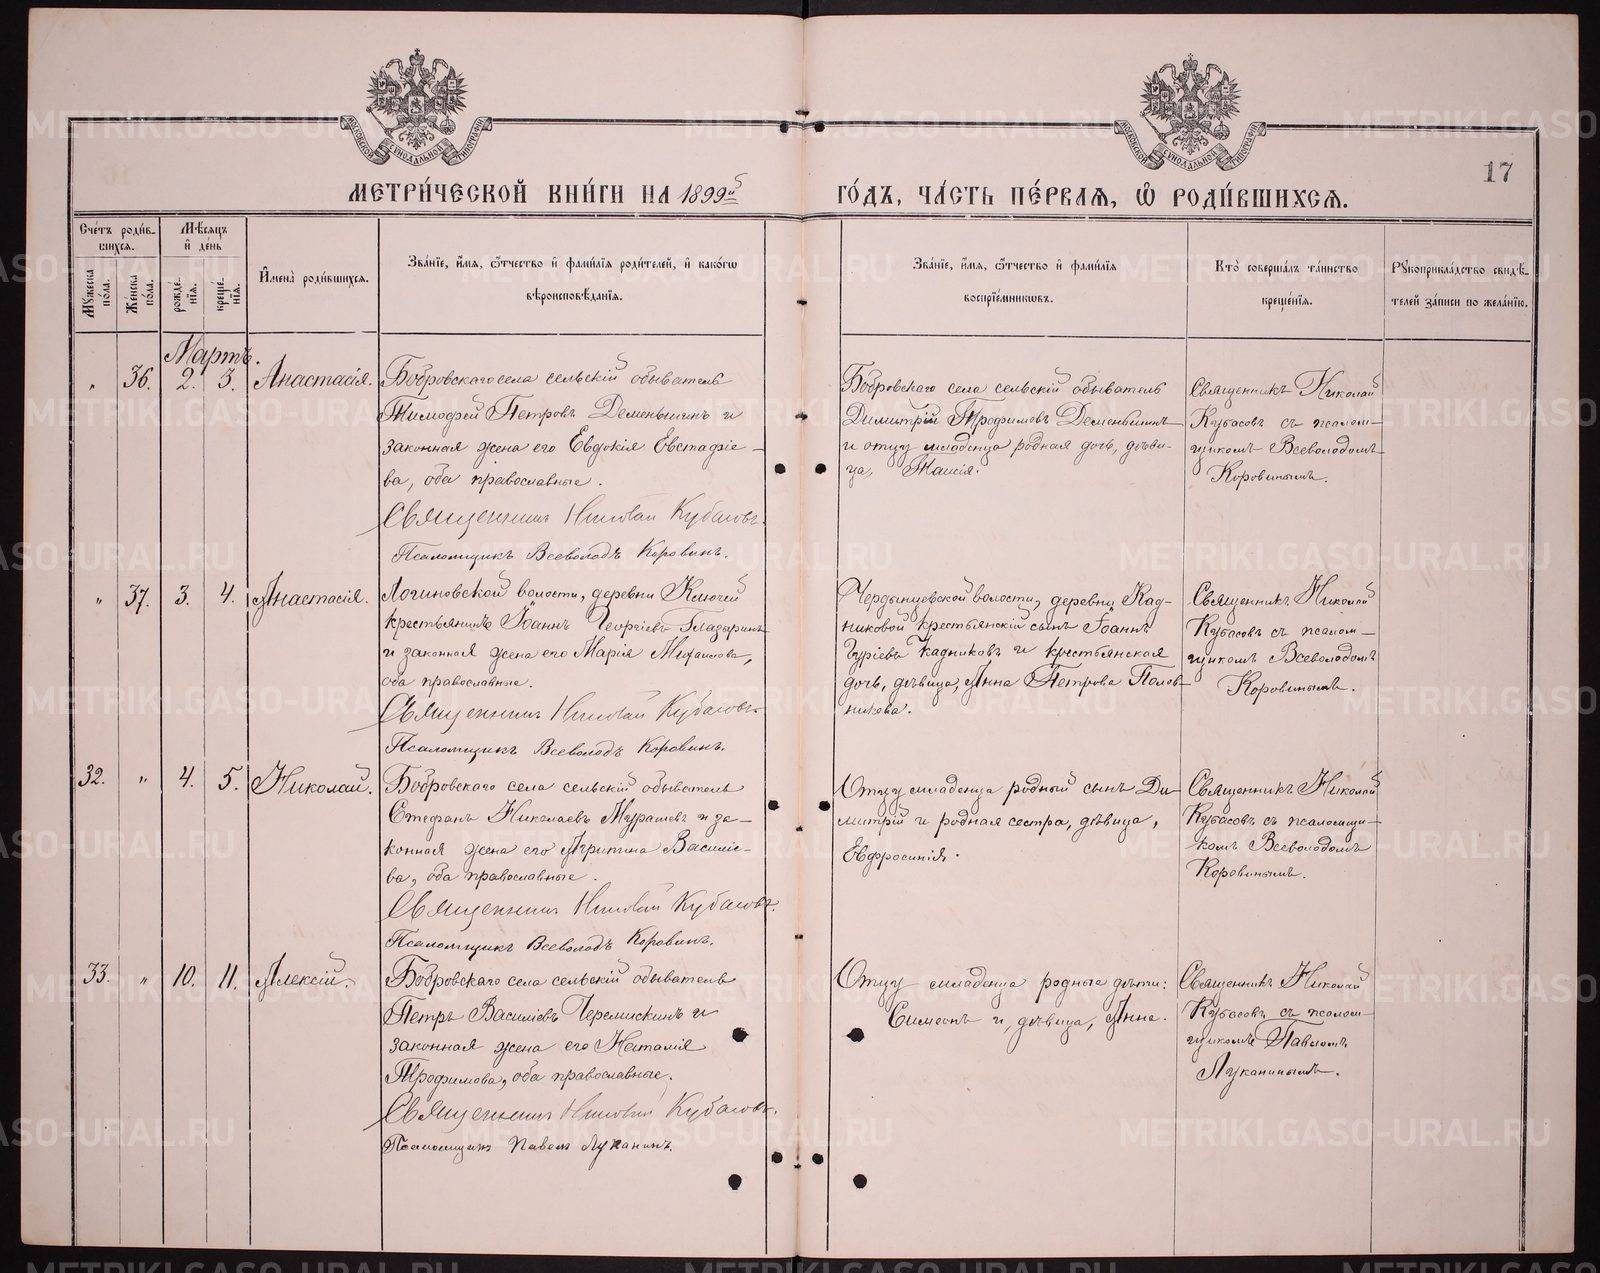 МОСКОВСКОЙ СѴНОДАЛЬНОЙ ТИПОГРАФІИ
МОСКОВСКОЙ СѴНОДАЛЬНОЙ ТИПОГРАФІИ
17
МЕТРИ́ЧЕСКОЙ КНИ́ГИ НА 1899й ГО́ДЪ, ЧА́СТЬ ПЕ́РВАѦ, Ѡ҆ РОДИ́ВШИХСѦ.
Сче́тъ роди́в-
шихсѧ.
Мꙋжеска по́ла.
Же́нска по́ла.
Мѣ́сѧцъ
и҆ де́нь
рожде́-
нїѧ.
креще́-
нїѧ.
И҆мена̀ роди́вшихсѧ.
Зва́нїе, и҆́мѧ, ѻ҆́тчество и҆ фамилїѧ роди́телей, и҆ како́гѡ
вѣроисповѣ́данїѧ.
Зва́нїе, и҆́мѧ, ѻ҆́тчество и҆ фамилїѧ
воспрїе́мникѡвъ.
Кто̀ соверша́лъ та́инство
креще́нїѧ.
Рꙋкоприкла́дство свидѣ́-
телей за́писи по жела́нїю.
Мартъ.
" 36. 2. 3. Анастасія.
Бобровскаго села сельскій обыватель
Тимофей Петровъ Деменьшинъ и
законная жена его Евдокія Евстафіе-
ва, оба православные.
Священникъ Николай Кубасовъ.
Псаломщикъ Всеволодъ Коровинъ.
Бобровскаго села сельскій обыватель
Димитрій Трофимовъ Деменьшинъ
и отцу младенца родная дочь, дѣви-
ца, Таисія.
Священникъ Николай
Кубасовъ съ псалом-
щикомъ Всеволодомъ
Коровинымъ.
" 37. 3. 4. Анастасія.
Логиновской волости, деревни Ключей
крестьянинъ Іоаннъ Георгіевъ Глазаринъ
и законная жена его Марія Михаилова,
оба православные.
Священникъ Николай Кубасовъ
Псаломщикъ Всеволодъ Коровинъ.
Чердынцевской волости, деревни Кад-
никовой крестьянскій сынъ Іоаннъ
Гуріевъ Кадниковъ и крестьянская
дочь, дѣвица, Анна Петрова Полов-
никова.
Священникъ Николай
Кубасовъ съ псалом-
щикомъ Всеволодомъ
Коровинымъ.
32. " 4. 5. Николай.
Бобровскаго села сельскій обыватель
Стефанъ Николаевъ Мурашевъ и за-
конная жена его Агрипина Василіе-
ва, оба православные.
Священникъ Николай Кубасовъ.
Псаломщикъ Всеволодъ Коровинъ.
Отцу младенца родный сынъ Ди-
митрій и родная сестра, дѣвица,
Евфросинія.
Священникъ Николай
Кубасовъ съ псаломщи-
комъ Всеволодомъ
Коровинымъ.
33. " 10. 11. Алексій.
Бобровскаго села сельскій обыватель
Петръ Василіевъ Черемискинъ и
законная жена его Наталія
Трофимова, оба православные.
Священникъ Николай Кубасовъ.
Псаломщикъ Павелъ Луканинъ.
Отцу младенца родные дѣти:
Симеонъ и, дѣвица, Анна.
Священникъ Николай
Кубасовъ съ псалом-
щикомъ Павломъ
Луканинымъ.
METRIKI.GASO-URAL.RU